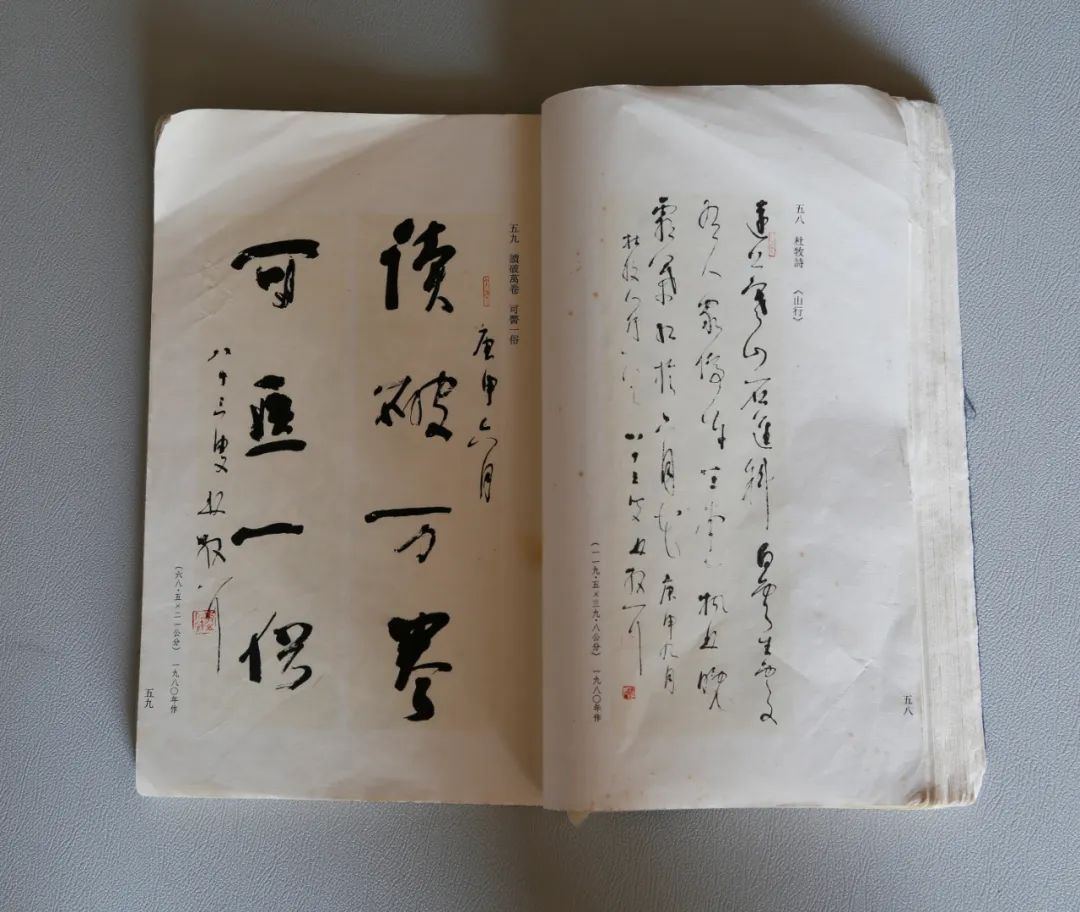 五八
五八 杜牧詩 《山行》
遠上寒山石逕斜白雲生處
有人家停車坐愛楓林晚
霜葉紅於二月花 庚申九月
杜牧山行 八十三叟林散耳
(一一九·五×三九·八公分) 一九八〇年作
五九 讀破萬卷 可醫一俗
庚申六月
读破万卷
可医一俗
八十三叟林散耳
(六八·五×二一公分) 一九八〇年作
五九